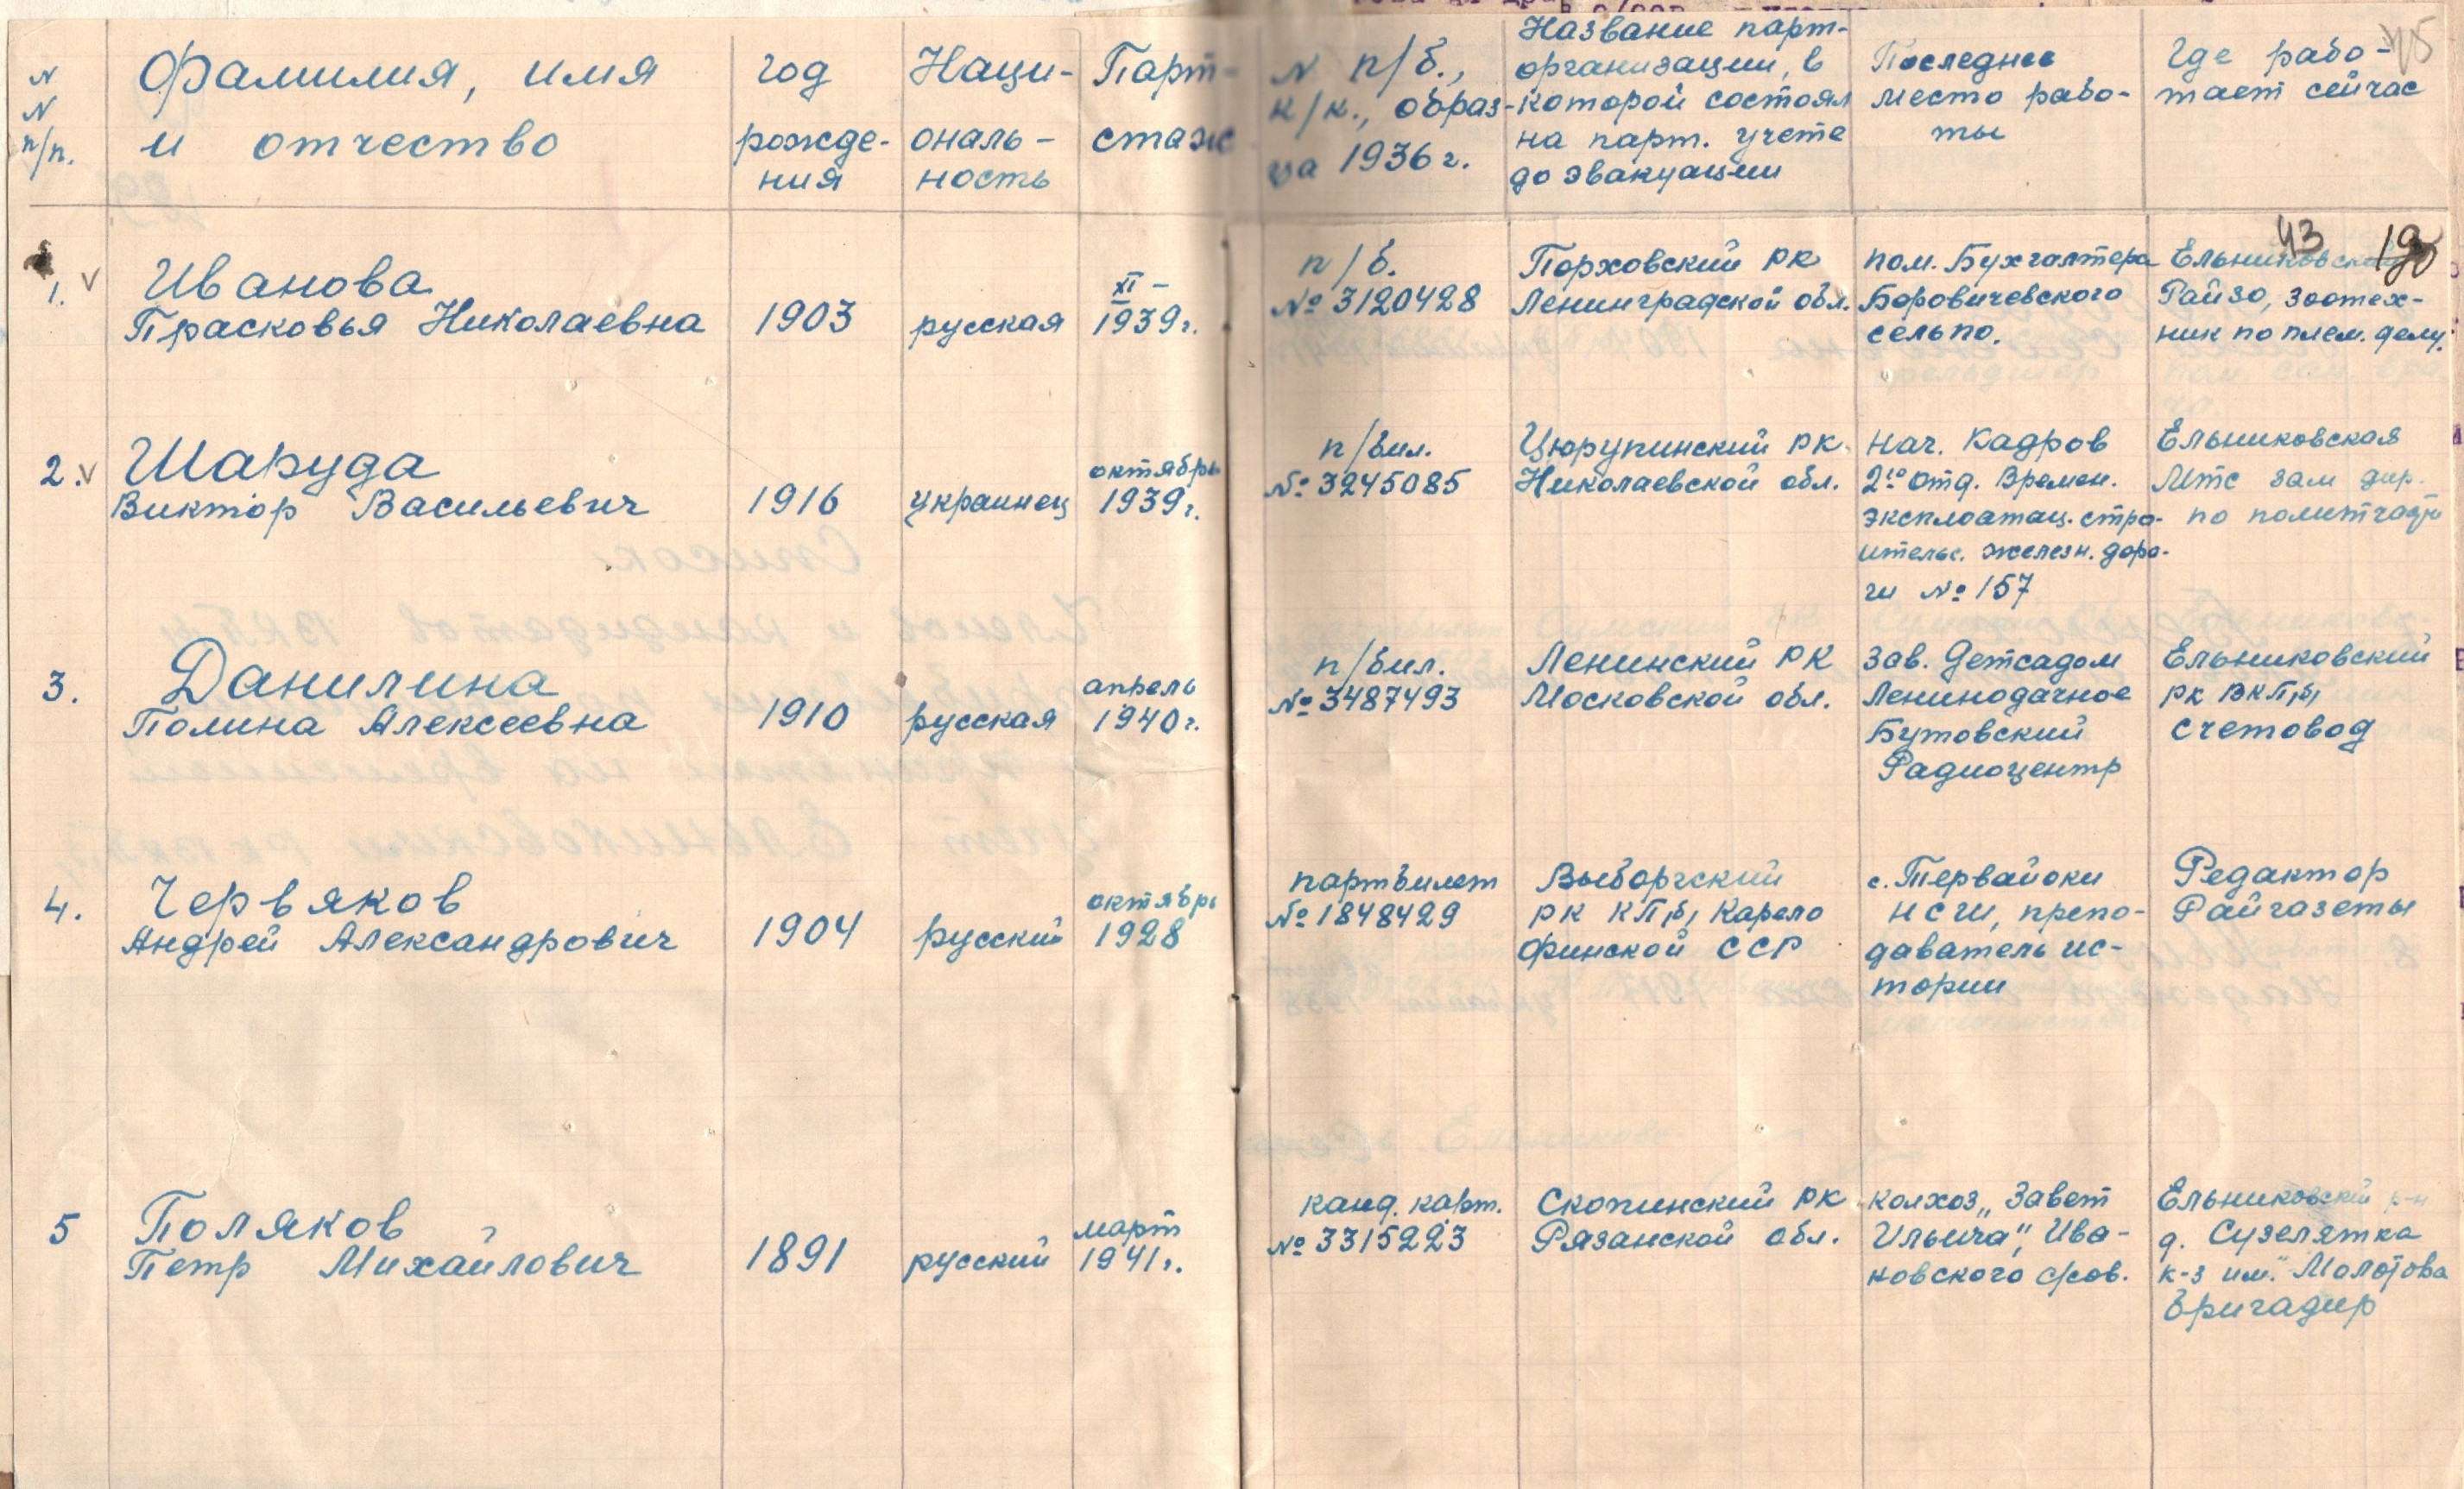 N
N
п/п.
Фамилия, имя
и отчество
год
рожде-
ния
Наци-
ональ-
ность
Парт-
стаж
N п/б.,
к/к., образ-
ца 1936 г.
Название парт-
организации, в
которой состоял
на парт. учете
до эвакуации
Последнее
место рабо-
ты
Где рабо-
тает сейчас
43
1. V
Иванова
Прасковья Николаевна
1903
русская
XI –
1939 г.
п/б.
№ 3120428
Порховский РК
Ленинградской обл.
пом. Бухгалтера
Боровичевского
сельпо.
Ельниковский
Райзо, зоотех-
ник по плем. делу.
2. V
Шаруда
Виктор Васильевич
1916
украинец
октябрь
1939 г.
п/бил.
№ 3245085
Цюрупинский РК
Николаевской обл.
нач. Кадров
2го отд. Времен.
эксплоатац. стро-
ительс. железн. доро-
ги № 157
Ельниковская
Мтс зам дир.
по политчасти
3.
Данилина
Полина Алексеевна
1910
русская
апрель
1940 г.
п/бил.
№ 3487493
Ленинский РК
Московской обл.
Зав. Детсадом
Ленинодачное
Бутовский
Радиоцентр
Ельниковский
РК ВКП(б)
Счетовод
4.
Червяков
Андрей Александрович
1904
русский
октябрь
1928
партбилет
№ 1848429
Выборгский
РК КП(б) Карело
Финской ССР
с. Тервайоки
НСШ, препо-
даватель ис-
тории
Редактор
Райгазеты
5
Поляков
Петр Михайлович
1891
русский
март
1941 г.
канд. карт.
№ 3315223
Скопинский РК
Рязанской обл.
колхоз „Завет
Ильича", Ива-
новского сов.
Ельниковский р-н
д. Сузелятка
к-з им. Молотова
бригадир